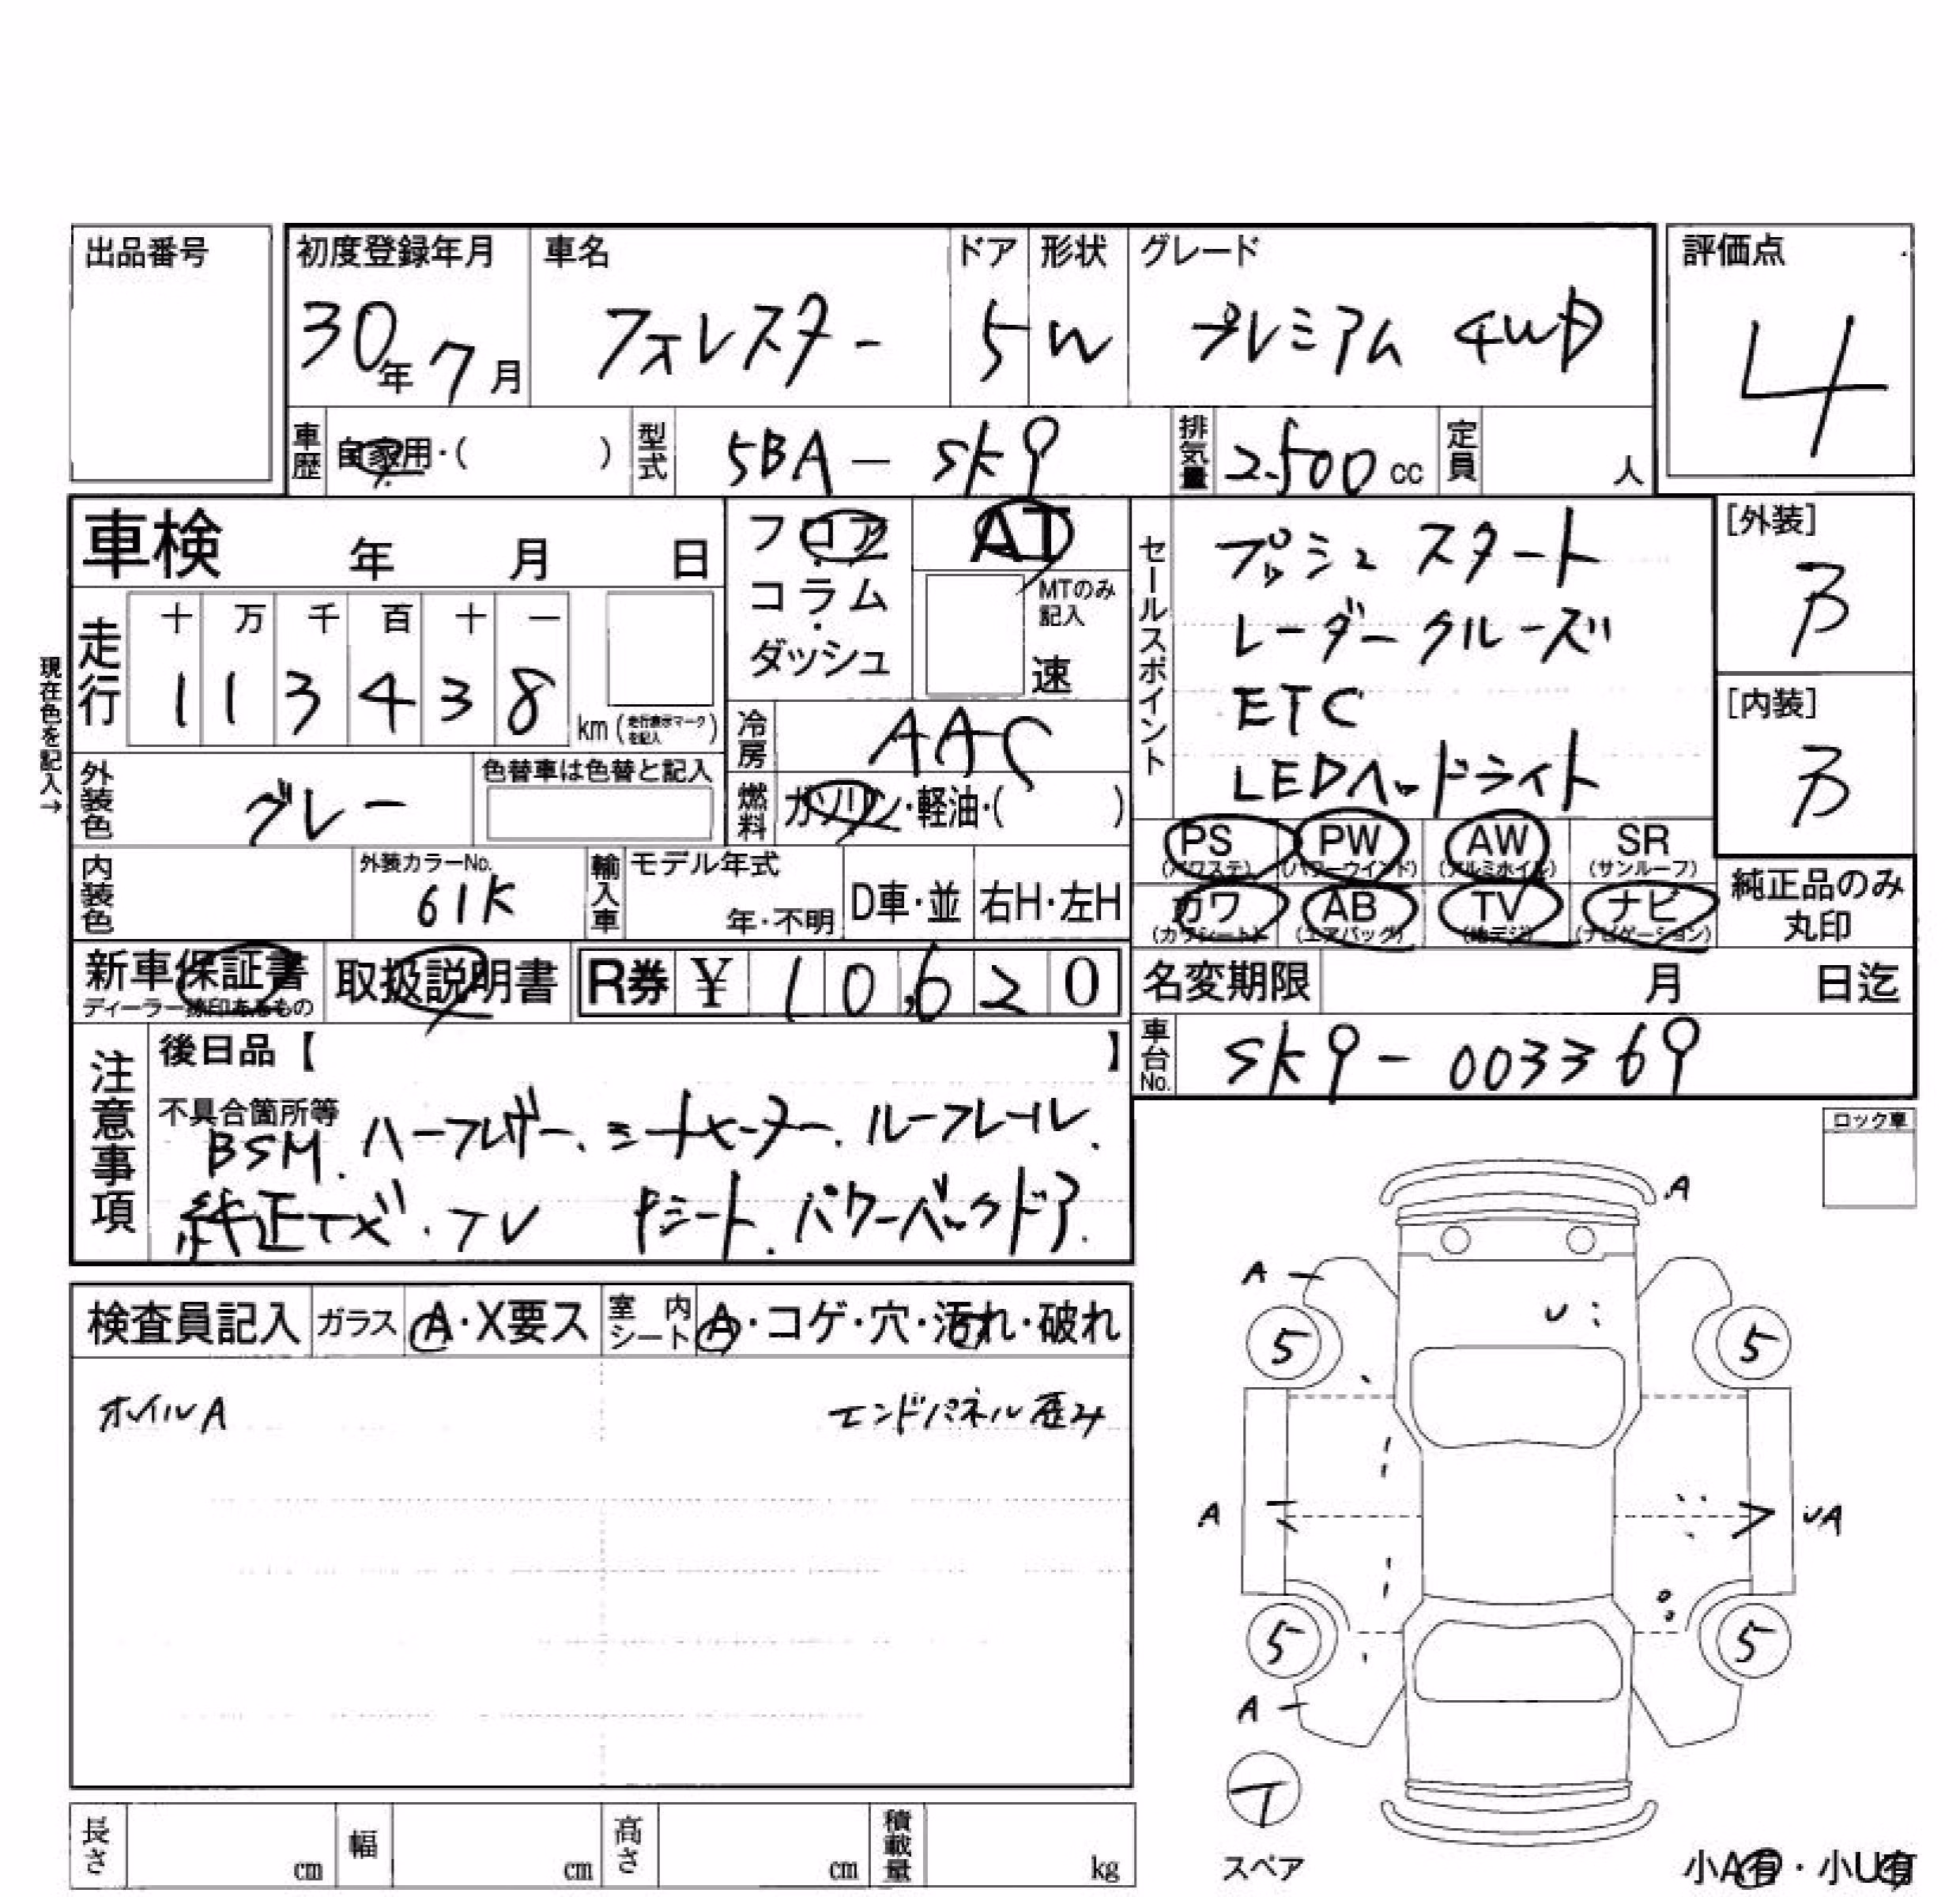 出品番号
初度登録年月 車名 ドア 形状 グレード 評価点
30年 7月 フォレスター 5 W プレミアム 4WD 4
車歴 自家用・( ) 型式 5BA-SK9 排気量 2500cc 定員 人
車検 年 月 日
フロア
コラム
ダッシュ
AT
MTのみ
記入
速
セールスポイント
プッシュスタート
レーダークルーズ
ETC
LEDヘッドライト
[外装]
B
[内装]
B
現在色を記入→
走行 十 万 千 百 十 一
1 1 3 4 3 8 km (走行表示マークを記入)
冷房 AAC
燃料 ガソリン・軽油・( )
外装色 グレー 色替車は色替と記入
PS (パワステ) PW (パワーウインド) AW (アルミホイル) SR (サンルーフ)
カワ (カワシート) AB (エアバッグ) TV (地デジ) ナビ (ナビゲーション)
純正品のみ
丸印
内装色 外装カラーNo. 61K 輸入車 モデル年式 年・不明 D車・並 右H・左H
新車保証書 取扱説明書 R券 ¥ 10,620 名変期限 月 日迄
ディーラー捺印あるもの
車台No. SK9-003369
注意事項
後日品【 】
不具合箇所等
BSM. ハーフレザー、シートヒーター、ルーフレール、
純正ナビ・TV Pシート、パワーバックドア.
ロック車
検査員記入 ガラス A・X要ス 室内シート A・コゲ・穴・汚れ・破れ
ホイルA エンドパネル歪み
A
A
U
5 5
A UA
5 5
A
T
スペア
小A有・小U有
長さ cm 幅 cm 高さ cm 積載量 kg